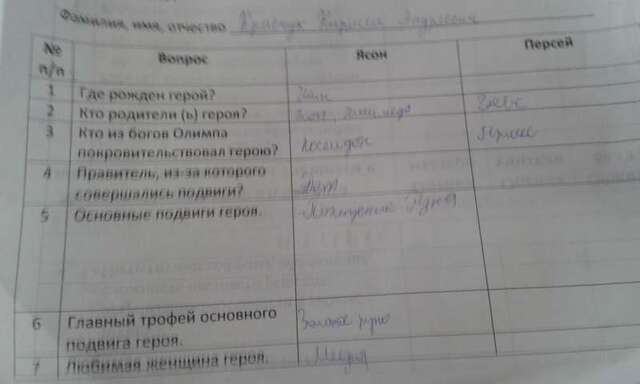 Фамилия, имя, отчество
№ п/п Вопрос Ясон Персей
1 Где рожден герой?
2 Кто родители (ь) героя? Зевс
3 Кто из богов Олимпа
покровительствовал герою? Посейдон
4 Правитель, из-за которого
совершались подвиги?
5 Основные подвиги героя. Похищение Руна
6 Главный трофей основного
подвига героя. Золотое руно
7 Любимая женщина героя. Медея